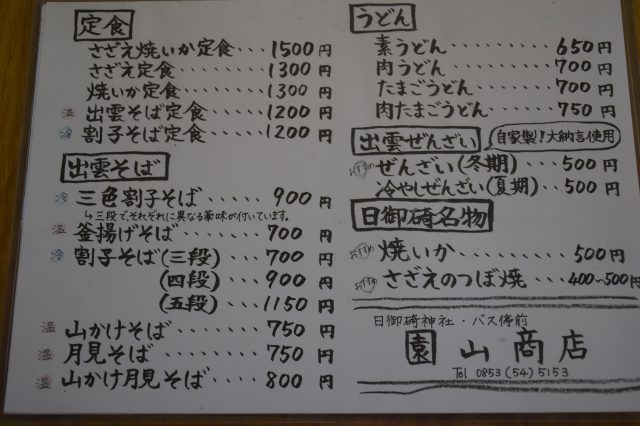 定食
さざえ焼いか定食・・・1500円
さざえ定食・・・・・・・1300円
焼いか定食・・・・・・1300円
温 出雲そば定食・・・・1200円
冷 割子そば定食・・・・1200円
出雲そば
冷 三色割子そば・・・・・900円
↳三段で、それぞれに異なる薬味が付いています。
温 釜揚げそば・・・・・・700円
冷 割子そば(三段)・・・・700円
(四段)・・・・900円
(五段)・・・1150円
温 山かけそば・・・・・・・750円
温 月見そば・・・・・・・・750円
温 山かけ月見そば・・・・・800円
うどん
素うどん・・・・・・・・・650円
肉うどん・・・・・・・・・700円
たまごうどん・・・・・・・700円
肉たまごうどん・・・・・・750円
出雲ぜんざい 自家製!大納言使用
おすすめ ぜんざい(冬期)・・・500円
冷やしぜんざい(夏期)・・500円
日御碕名物
おすすめ 焼いか・・・・・・・・・500円
おすすめ さざえのつぼ焼・・・400~500円
日御碕神社・バス停前
園山商店
Tel 0853(54)5153